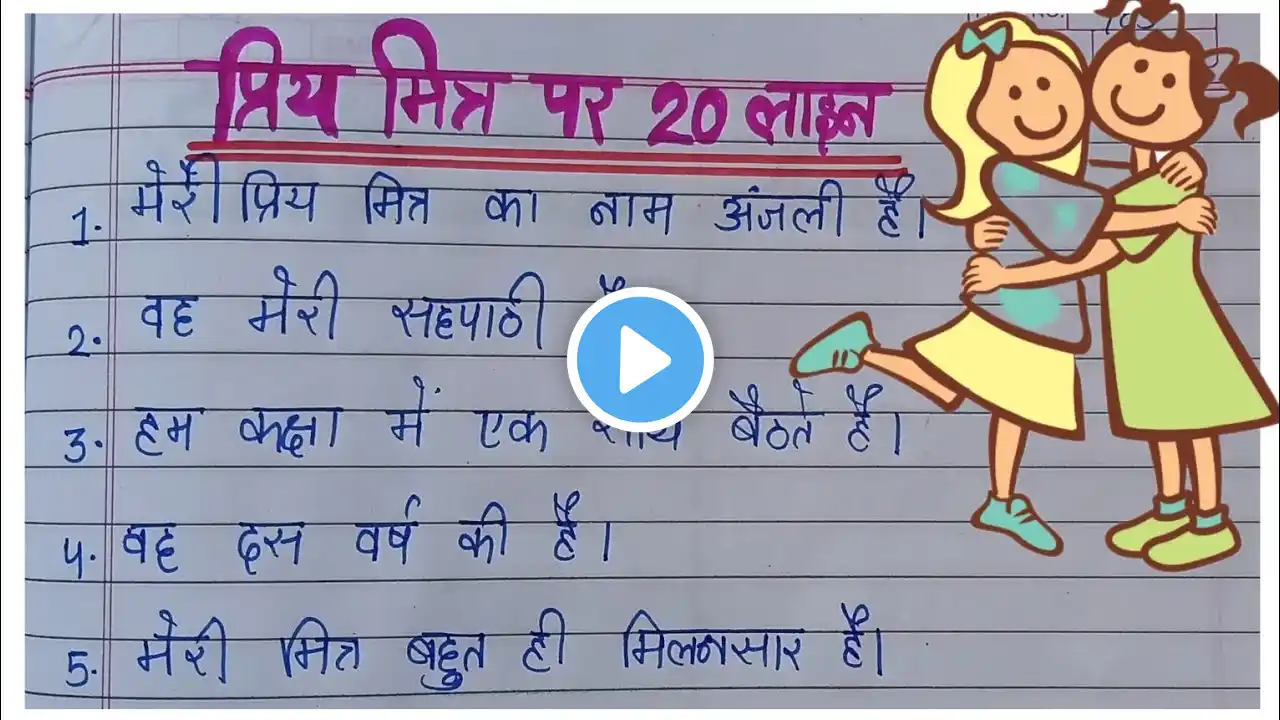 प्रिय मित्र पर 20 लाइन
1. मेरी प्रिय मित्र का नाम अंजली है।
2. वह मेरी सहपाठी
3. हम कक्षा में एक साथ बैठते है।
4. वह दस वर्ष की है।
5. मेरी मित्र बहुत ही मिलनसार है।